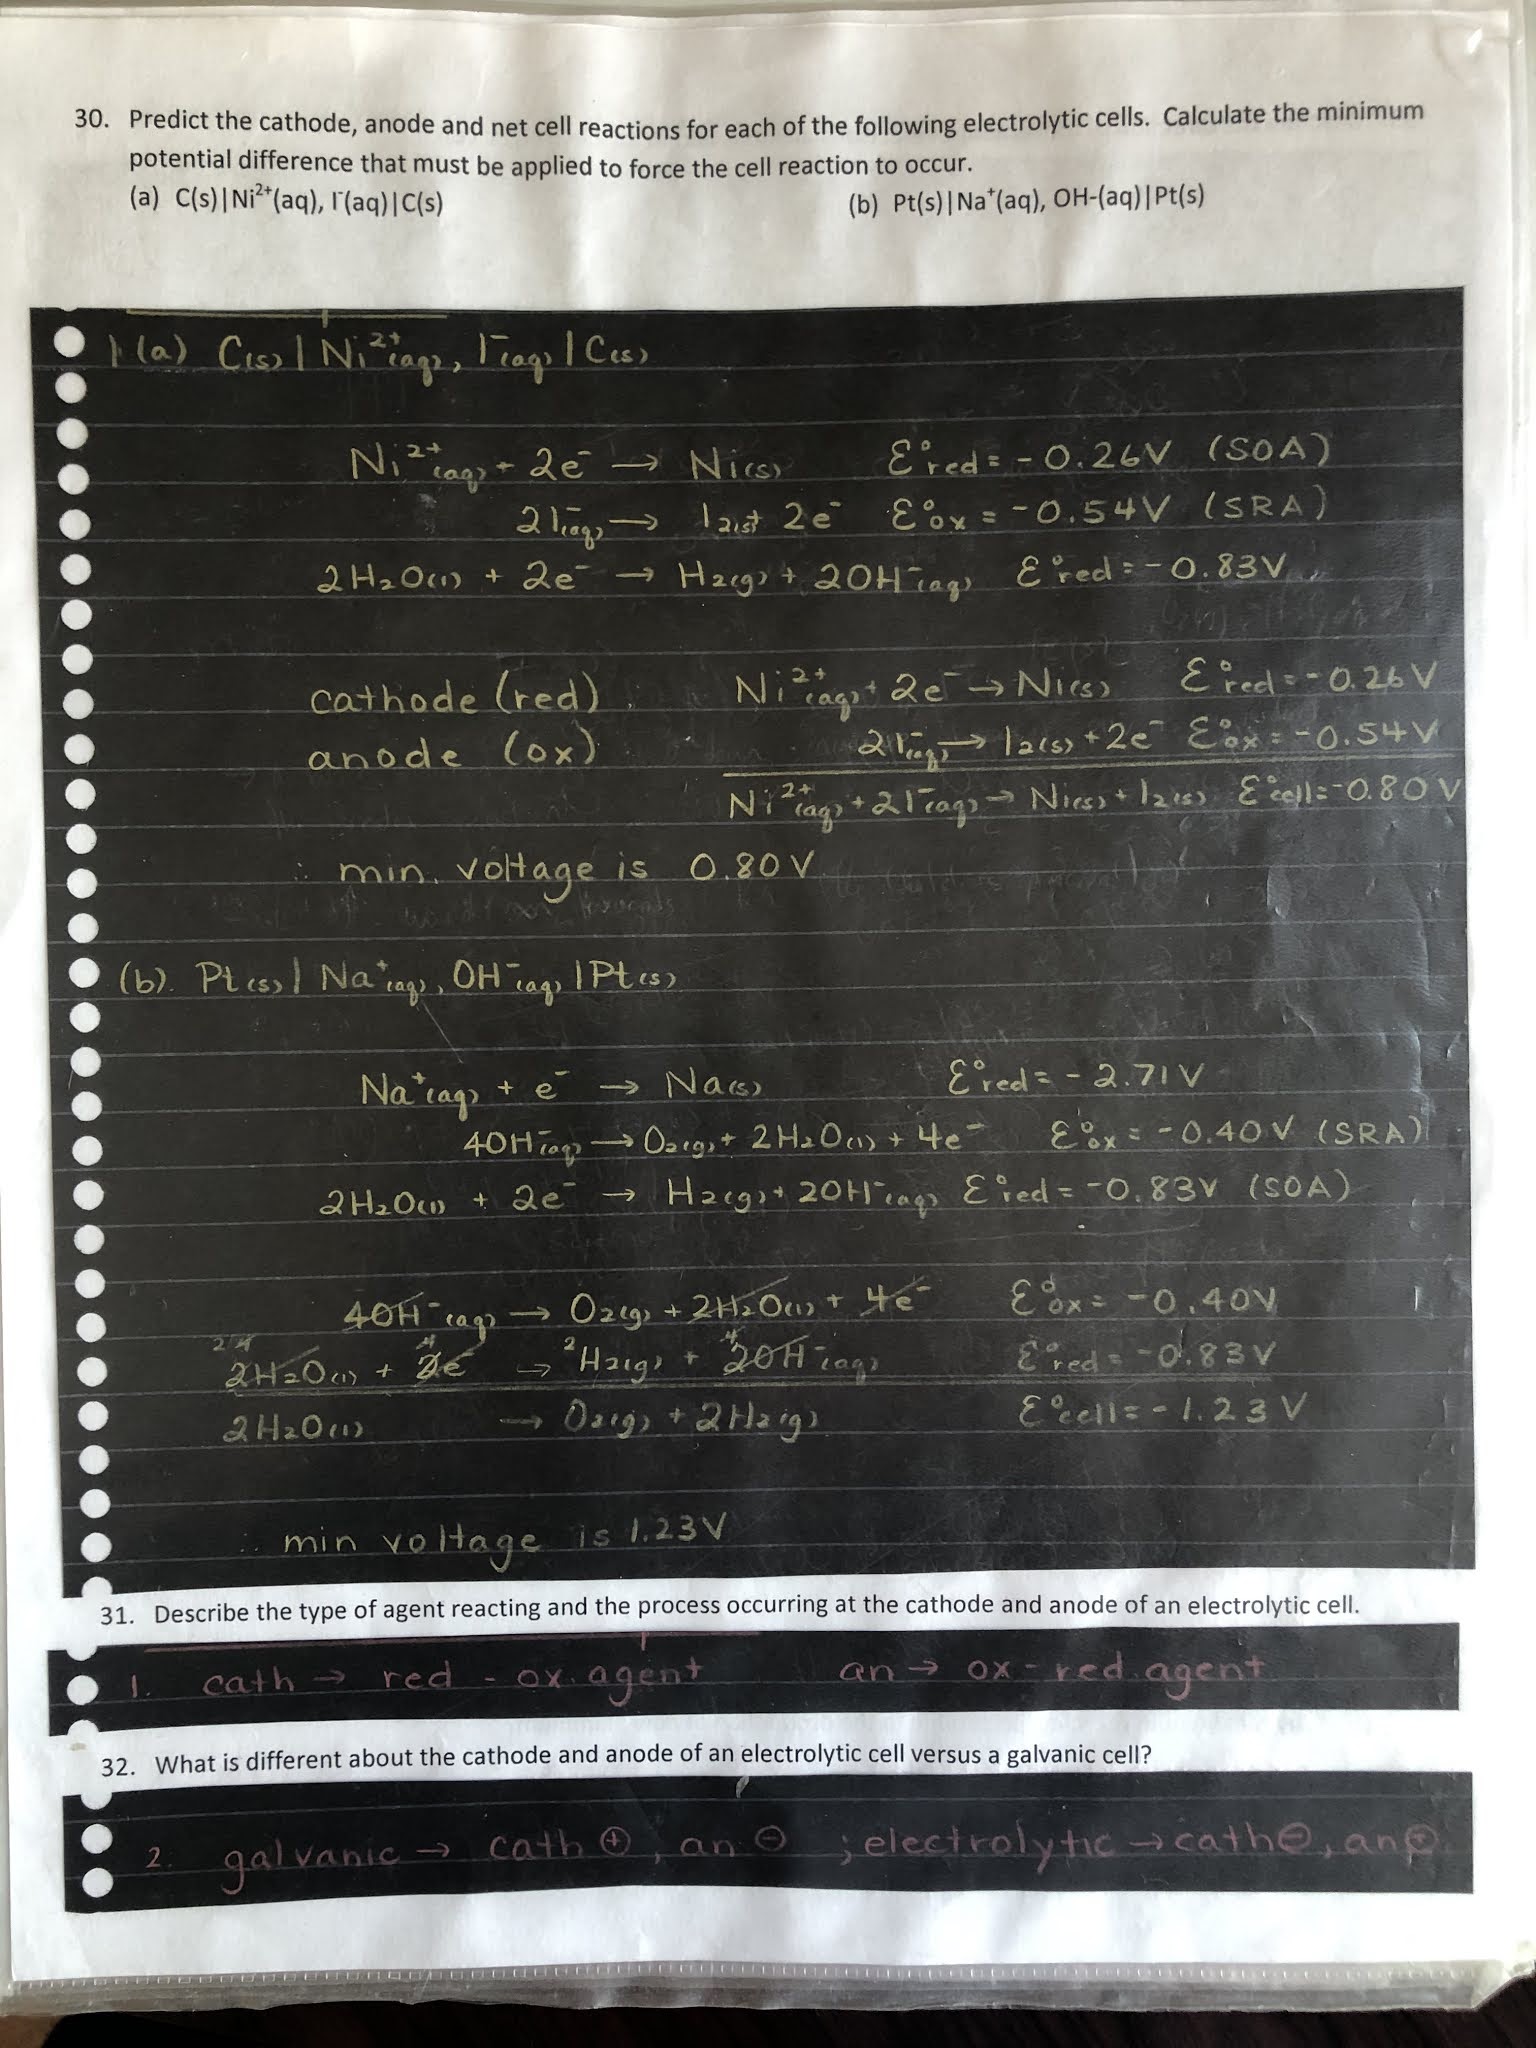 30. Predict the cathode, anode and net cell reactions for each of the following electrolytic cells. Calculate the minimum
potential difference that must be applied to force the cell reaction to occur.
(a) C(s)|Ni²⁺(aq), I⁻(aq)|C(s) (b) Pt(s)|Na⁺(aq), OH-(aq)|Pt(s)
1 (a) C(s) | Ni²⁺(aq), I⁻(aq) | C(s)
Ni²⁺(aq) + 2e⁻ → Ni(s) Ɛ°red = -0.26V (SOA)
2I⁻(aq) → I₂(s) + 2e⁻ Ɛ°ox = -0.54V (SRA)
2H₂O(l) + 2e⁻ → H₂(g) + 2OH⁻(aq) Ɛ°red = -0.83V
cathode (red) Ni²⁺(aq) + 2e⁻ → Ni(s) Ɛ°red = -0.26V
anode (ox) 2I⁻(aq) → I₂(s) + 2e⁻ Ɛ°ox = -0.54V
Ni²⁺(aq) + 2I⁻(aq) → Ni(s) + I₂(s) Ɛ°cell = -0.80V
∴ min. voltage is 0.80V
(b). Pt(s) | Na⁺(aq), OH⁻(aq) | Pt(s)
Na⁺(aq) + e⁻ → Na(s) Ɛ°red = -2.71V
4OH⁻(aq) → O₂(g) + 2H₂O(l) + 4e⁻ Ɛ°ox = -0.40V (SRA)
2H₂O(l) + 2e⁻ → H₂(g) + 2OH⁻(aq) Ɛ°red = -0.83V (SOA)
4OH⁻(aq) → O₂(g) + 2H₂O(l) + 4e⁻ Ɛ°ox = -0.40V
2 4 4 2 4
2H₂O(l) + 2e⁻ → H₂(g) + 2OH⁻(aq) Ɛ°red = -0.83V
2H₂O(l) → O₂(g) + 2H₂(g) Ɛ°cell = -1.23V
∴ min voltage is 1.23V
31. Describe the type of agent reacting and the process occurring at the cathode and anode of an electrolytic cell.
1. cath → red - ox. agent an → ox - red. agent
32. What is different about the cathode and anode of an electrolytic cell versus a galvanic cell?
2. galvanic → cath ⊕, an ⊖ ; electrolytic → cath ⊖, an ⊕.